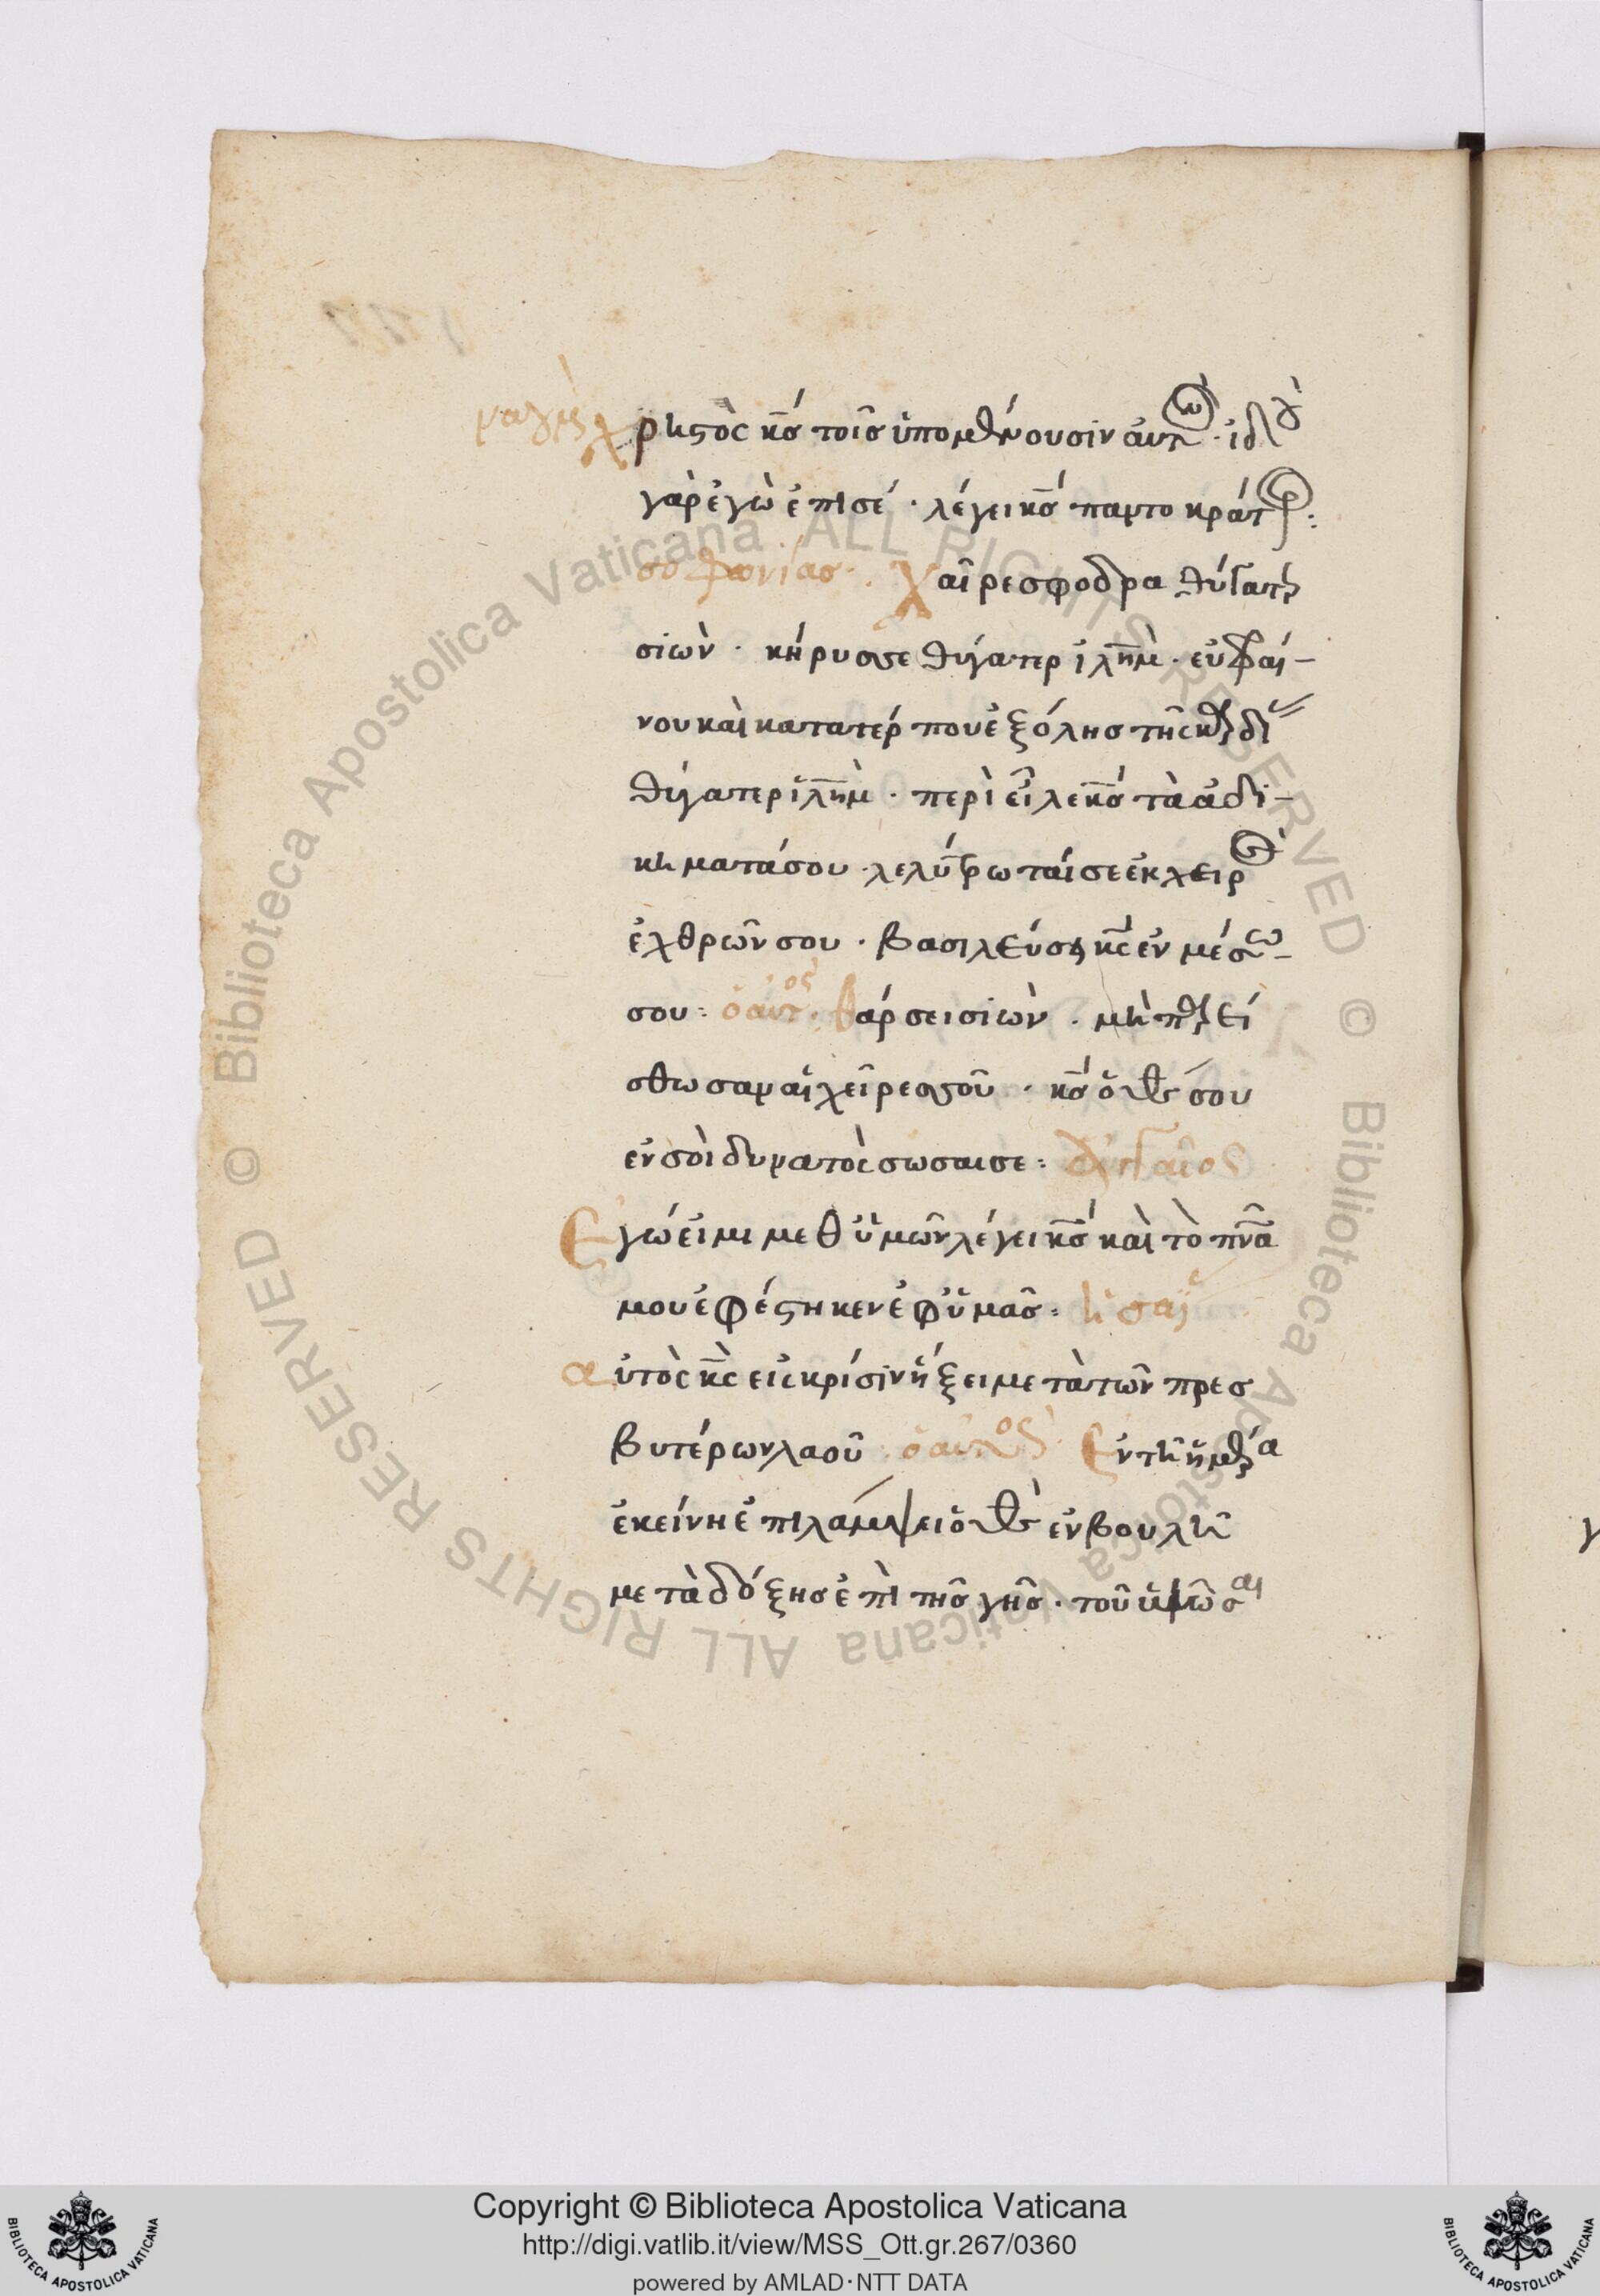 ναούμ χρηστὸς κς τοῖς ὑπομένουσιν αὐτὸν · ἰδοὺ
γὰρ ἐγὼ ἐπὶ σέ · λέγει κς παντοκράτωρ :
σοφονίας · χαῖρε σφοδρα θύγατερ
σιὼν · κήρυσσε θύγατερ ἰλημ · εὐφραί-
νου καὶ κατατέρπου ἐξ ὅλης τῆς καρδίας
θύγατερ ἰλημ · περὶεῖλε κς τὰ ἀδι-
κήματά σου · λελύτρωταί σε ἐκ χειρὸς
ἐχθρῶν σου · βασιλεύσει κς ἐν μέσω
σου : ὁ αὐτός · θάρσει σιὼν · μὴ παρεί
σθωσαν αἱ χεῖρες σοῦ · κς ὁ θς σου
ἐν σοὶ δυνατὸς σωσαι σε : ἀγγαῖος
Εγώ εἰμι μεθ ὑμῶν λέγει κς καὶ τὸ πνα
μου ἐφέστηκεν ἐφ ὑμᾶς : ησαΐου
αὐτὸς κς εἰς κρίσιν ἥξει μετὰ τῶν πρεσ
βυτέρων λαοῦ : ὁ αὐτός · Εν τῆ ἡμέρα
ἐκείνη ἐπιλάμψει ὁ θς ἐν βουλῆ
μετὰ δόξης ἐπὶ τῆς γῆς · τοῦ ὑψῶσαι
Copyright © Biblioteca Apostolica Vaticana
http://digi.vatlib.it/view/MSS_Ott.gr.267/0360
powered by AMLAD·NTT DATA
BIBLIOTECA APOSTOLICA VATICANA
BIBLIOTECA APOSTOLICA VATICANA
© Biblioteca Apostolica Vaticana ALL RIGHTS RESERVED
© Biblioteca Apostolica Vaticana ALL RIGHTS RESERVED